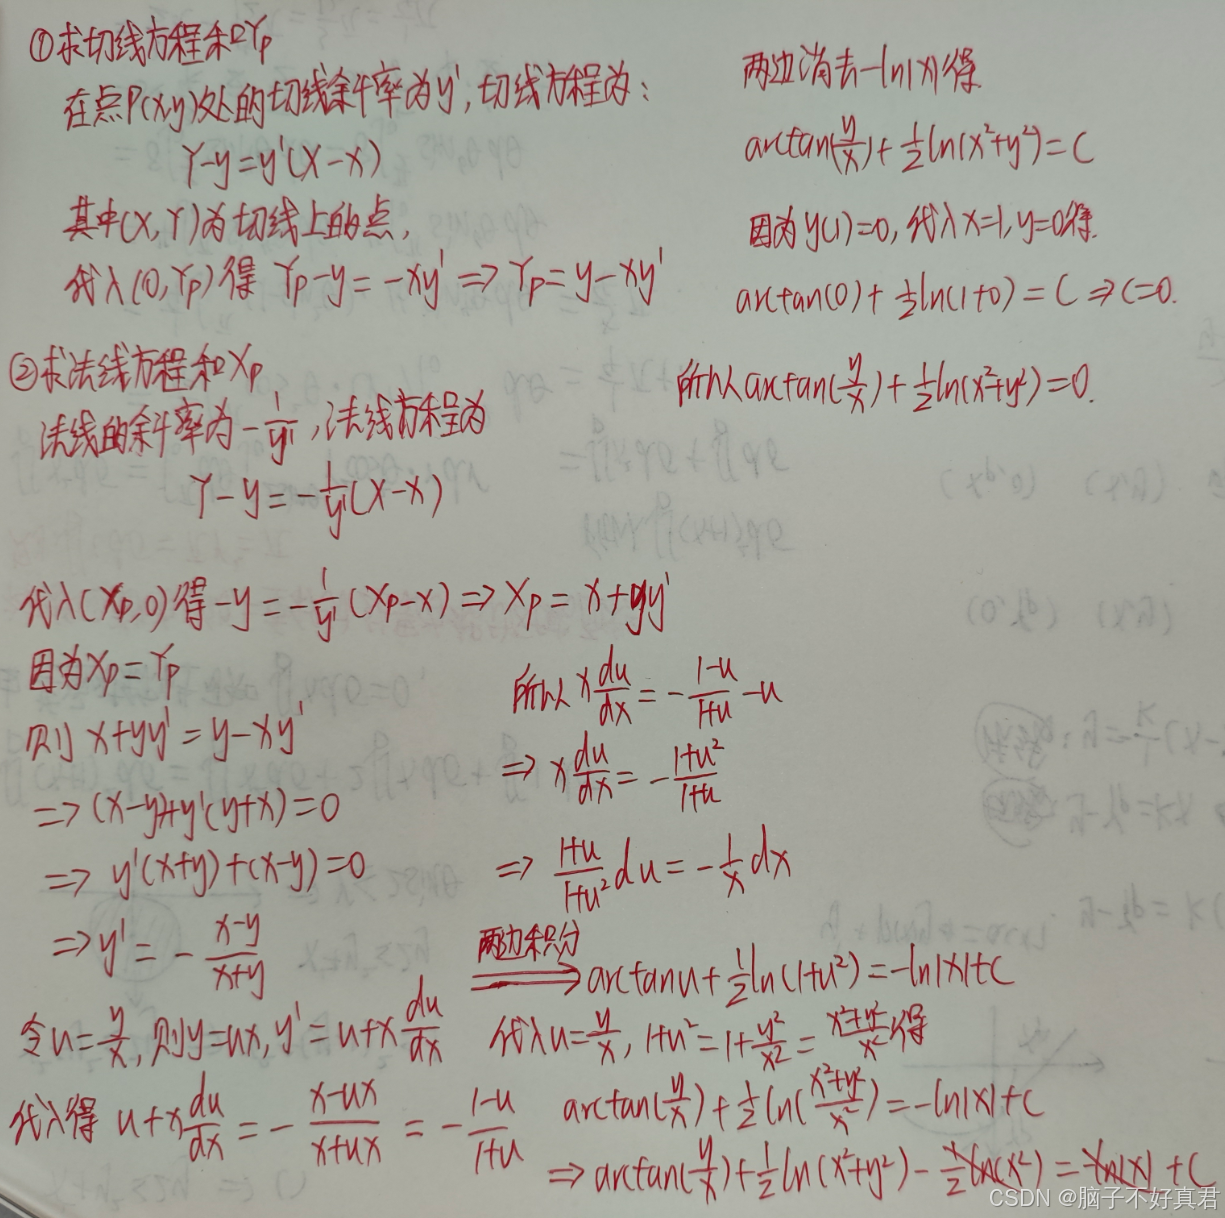 ①求切线方程和Yp
在点P(x,y)处的切线斜率为y',切线方程为:
Y-y=y'(X-x)
其中(X,Y)为切线上的点,
代入(0,Yp)得 Yp-y=-xy' => Yp=y-xy'
②求法线方程和Xp
法线的斜率为-1/y',法线方程为
Y-y=-1/y'(X-x)
代入(Xp,0)得-y=-1/y'(Xp-x)=>Xp=x+yy'
因为Xp=Yp
则x+yy'=y-xy'
=>(x-y)+y'(y+x)=0
=> y'(x+y)+(x-y)=0
=>y'=-(x-y)/(x+y)
令u=y/x,则y=ux,y'=u+x du/dx
代入得 u+x du/dx=-(x-ux)/(x+ux)=-(1-u)/(1+u)
所以x du/dx=-(1-u)/(1+u)-u
=> x du/dx=-(1+u²)/(1+u)
=> (1+u)/(1+u²)du=-1/x dx
两边积分
=>arctanu+1/2ln(1+u²)=-ln|x|+C
代入u=y/x,1+u²=1+y²/x²=(x²+y²)/x²得
arctan(y/x)+1/2ln((x²+y²)/x²)=-ln|x|+C
=>arctan(y/x)+1/2ln(x²+y²)-1/2ln(x²)=-ln|x|+C
两边消去-ln|x|得
arctan(y/x)+1/2ln(x²+y²)=C
因为y(1)=0,代入x=1,y=0得.
arctan(0)+1/2ln(1+0)=C=>C=0.
所以arctan(y/x)+1/2ln(x²+y²)=0.
CSDN @脑子不好真君